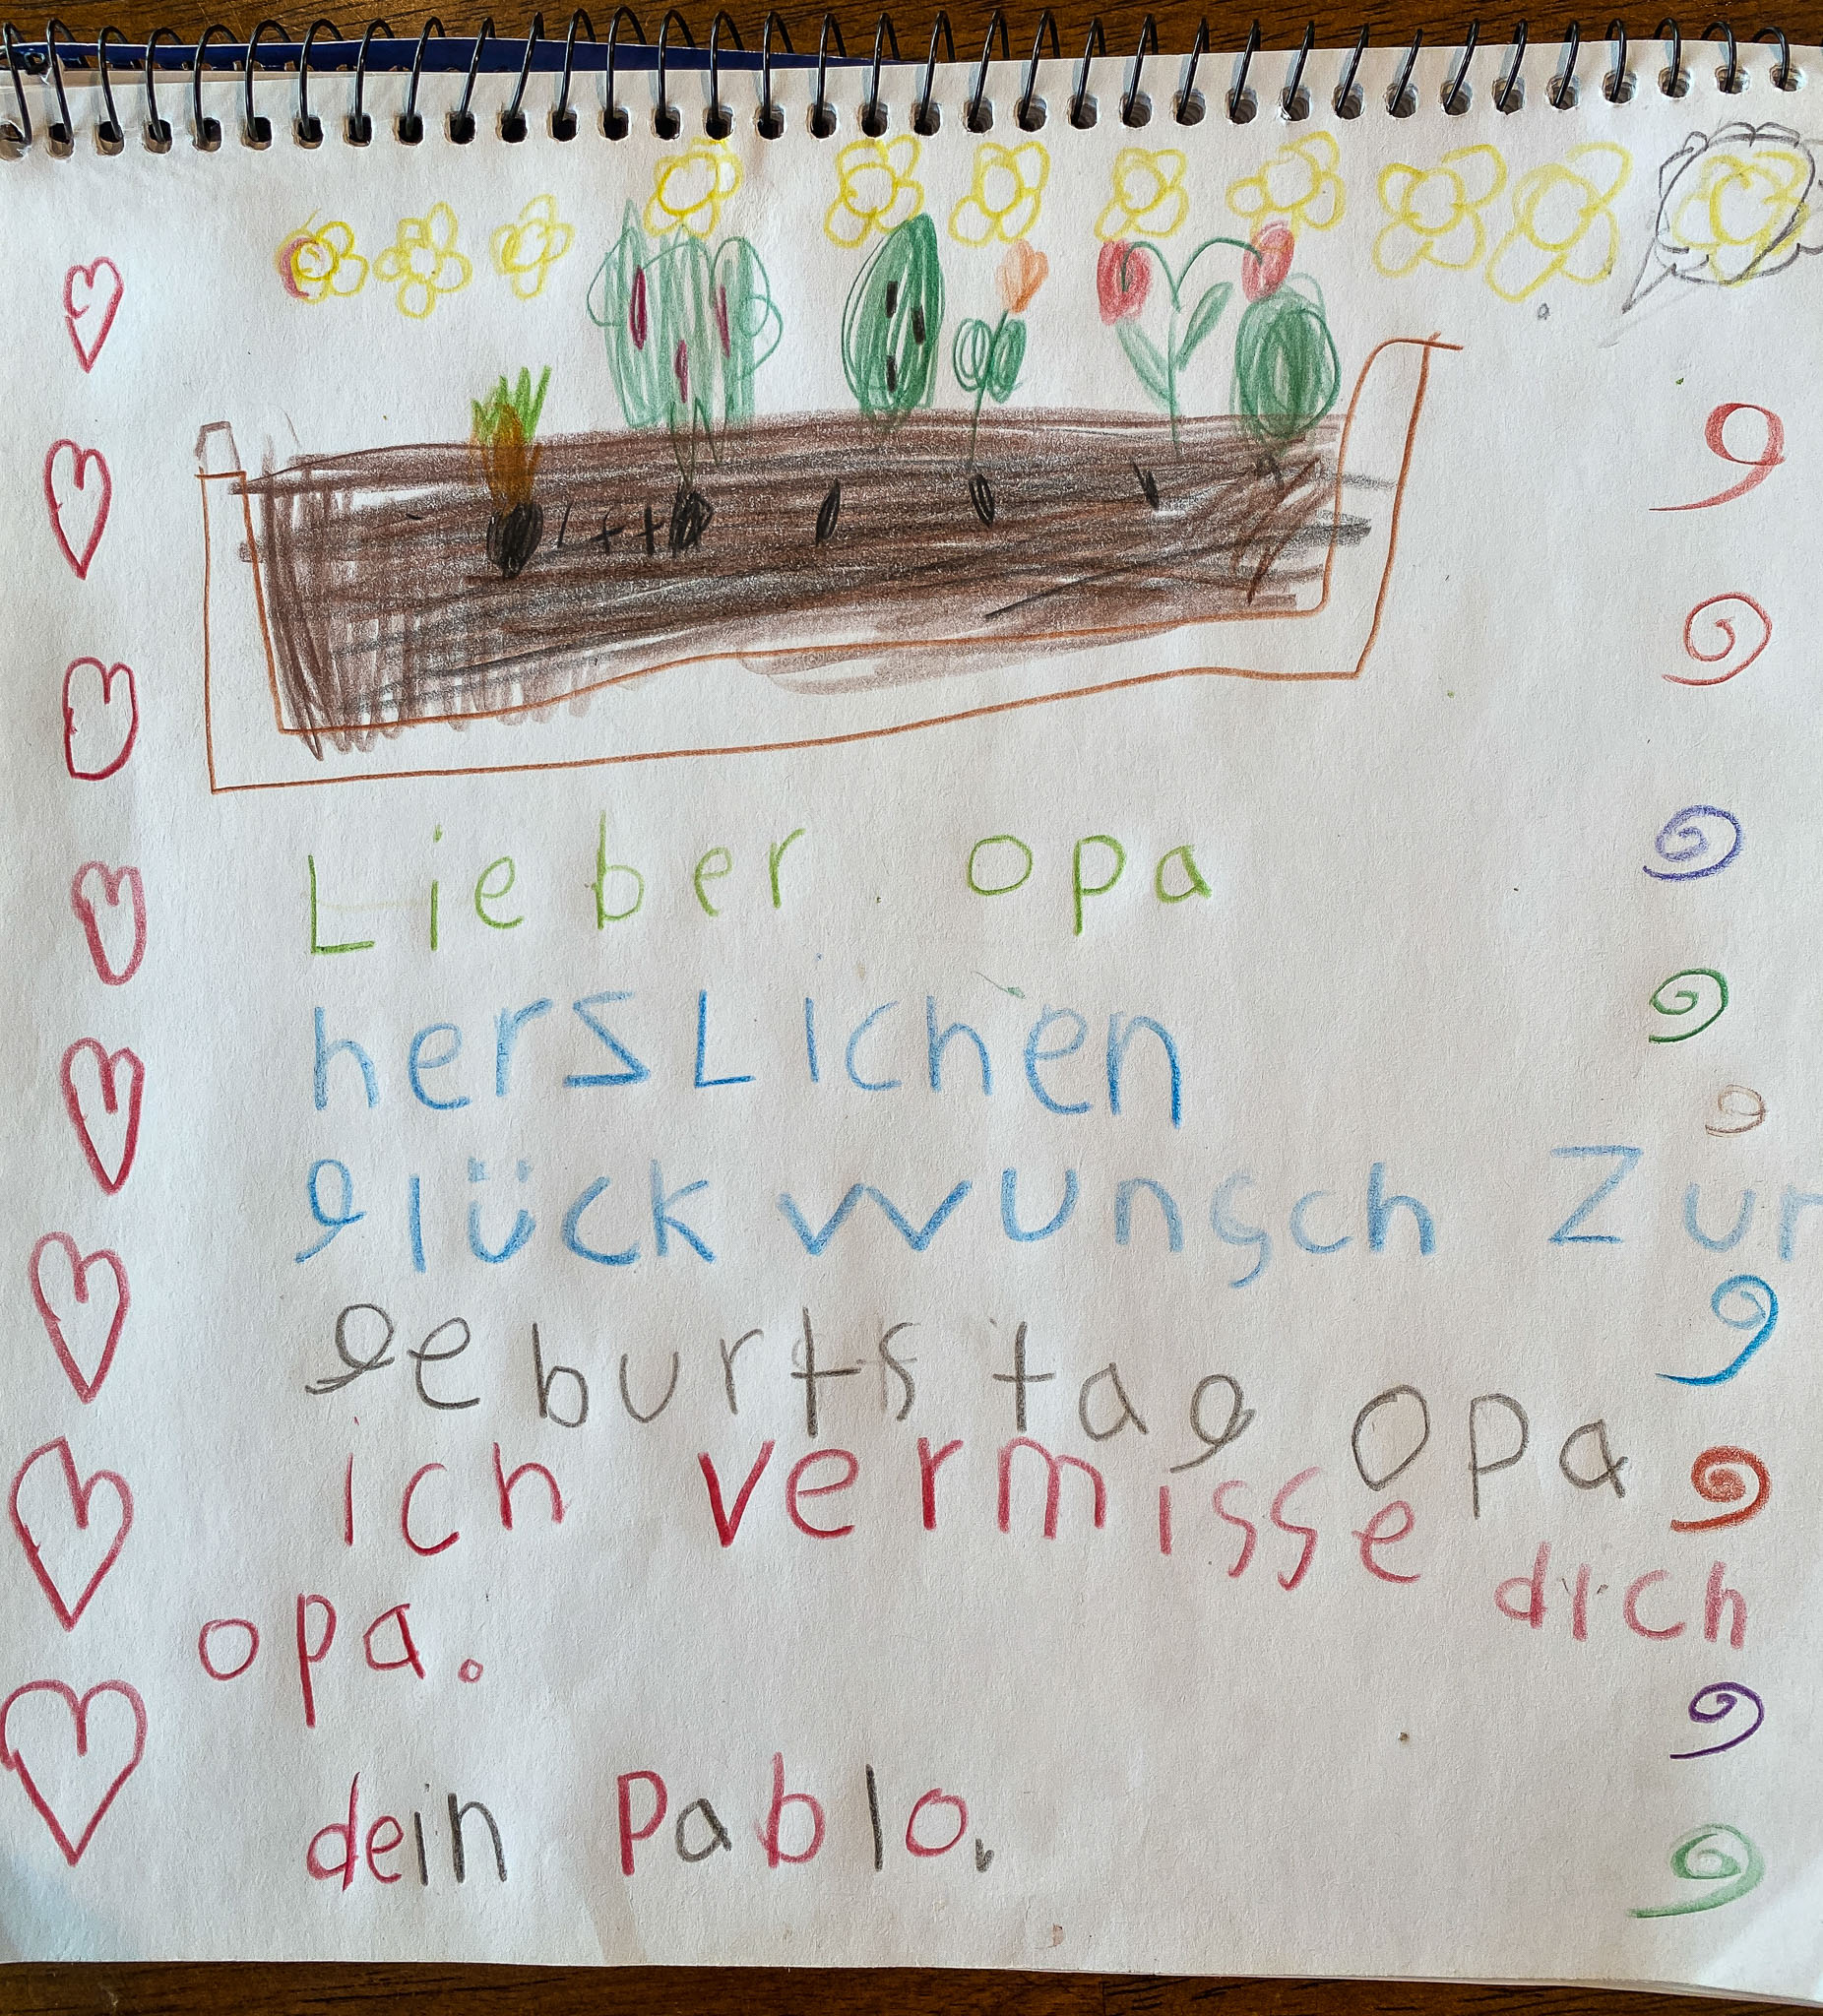 Lieber opa
herzLichen
glück wunsch zur
geburts tag opa
ich vermisse dich
opa.
dein Pablo.